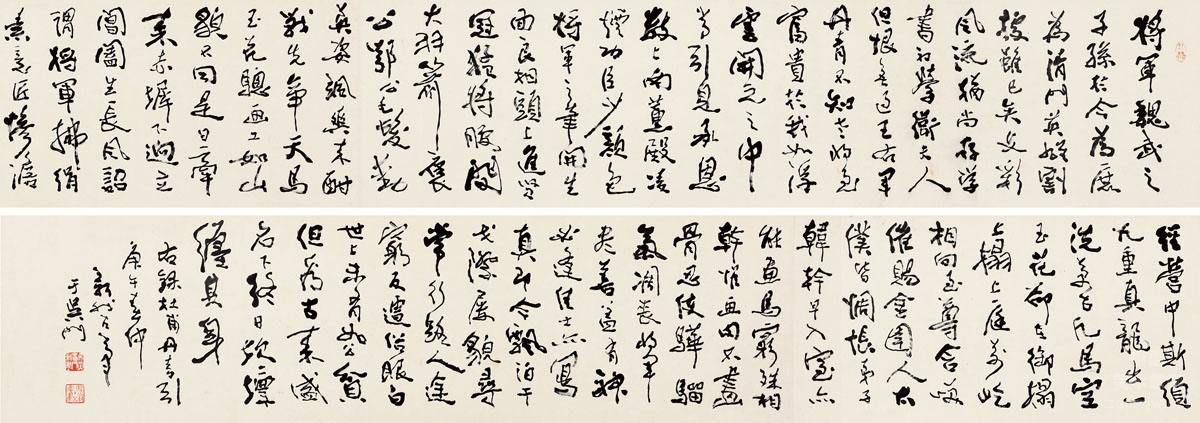 將軍魏武之
子孫於今為庶
為清門英雄割
據雖已矣文彩
風流猶尚存學
書初學衛夫人
但恨無過王右軍
丹青不知老將至
富貴於我如浮
雲開元之中
常引見承恩
數上南薰殿凌
煙功臣少顏色
將軍下筆開生
面良相頭上進賢
冠猛將腰間
大羽箭褒
公鄂公毛髮動
英姿颯爽来酣
戰先帝天馬
玉花驄画工如山
貌不同是日牽
来赤墀下迥立
閶闔生長風詔
謂將軍拂絹
素意匠慘澹
經營中斯須
九重真龍出一
洗萬古凡馬空
玉花却在御榻
上榻上庭前屹
相向至尊含笑
催賜金圉人太
僕皆惆悵弟子
韓幹早入室亦
能畫馬窮殊相
幹惟画肉不畫
骨忍使驊騮
氣凋喪將軍
盡善蓋有神
必逢佳士亦寫
真即今飄泊干
戈際屢貌尋
常行路人途
窮反遭俗眼白
世上未有如公貧
但看古来盛
名下終日坎壈
纏其身
右錄杜甫丹青引
庚午春仲
于吳門